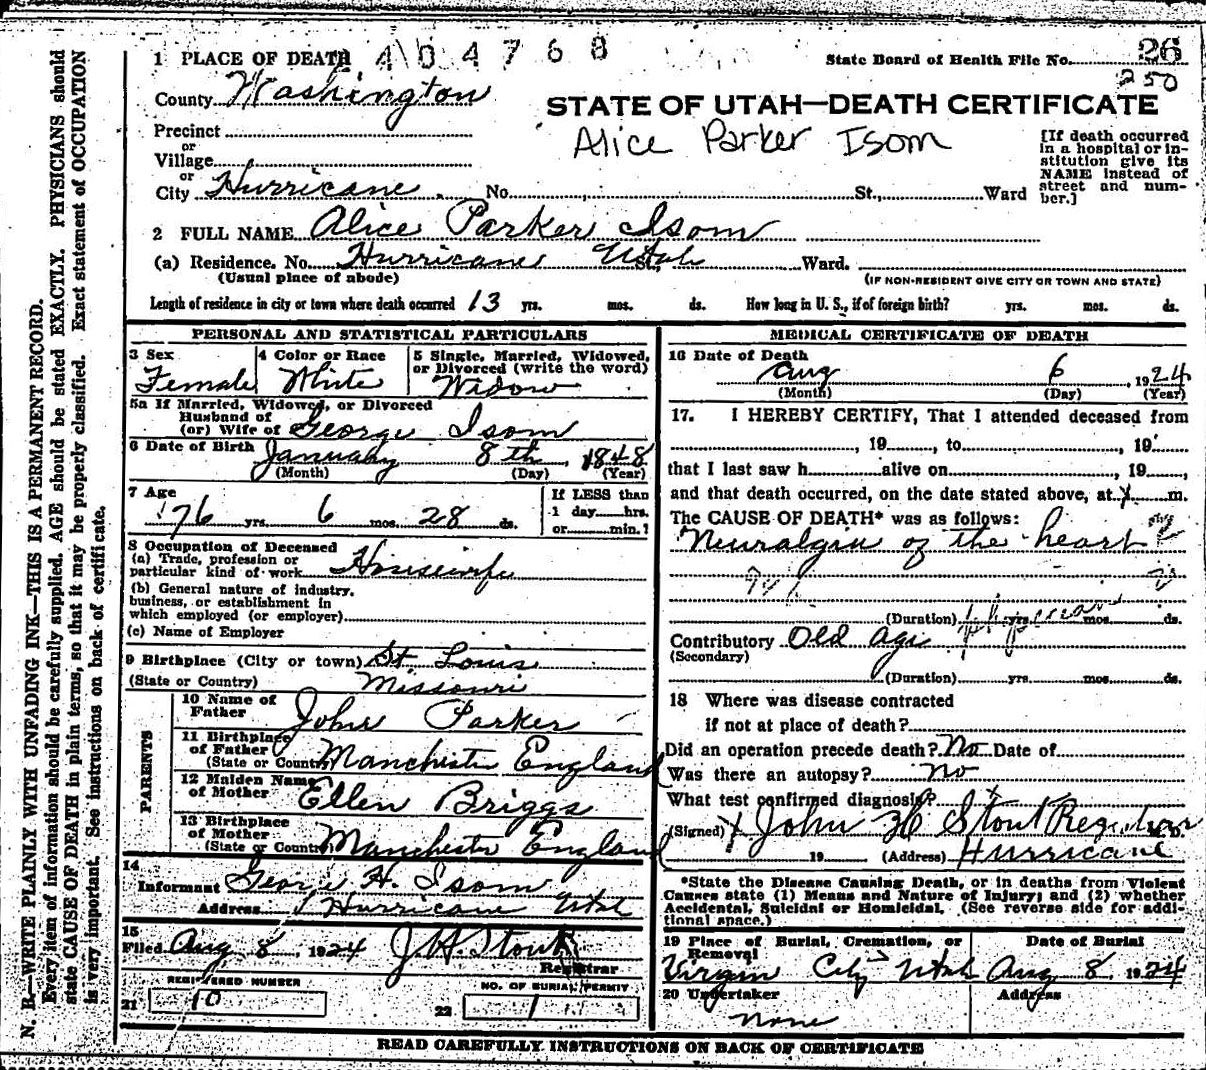 N. B.—WRITE PLAINLY WITH UNFADING INK—THIS IS A PERMANENT RECORD.
Every item of information should be carefully supplied. AGE should be stated EXACTLY. PHYSICIANS should
state CAUSE OF DEATH in plain terms, so that it may be properly classified. Exact statement of OCCUPATION
is very important. See instructions on back of certificate.
1 PLACE OF DEATH 404768
State Board of Health File No. 26
250
County Washington
STATE OF UTAH—DEATH CERTIFICATE
Alice Parker Isom
Precinct
or
Village
or
City Hurricane No. St., Ward
[If death occurred
in a hospital or in-
stitution give its
NAME instead of
street and num-
ber.]
2 FULL NAME Alice Parker Isom
(a) Residence. No. Hurricane Utah St., Ward.
(Usual place of abode)
(IF NON-RESIDENT GIVE CITY OR TOWN AND STATE)
Length of residence in city or town where death occurred 13 yrs. mos. ds. How long in U. S., if of foreign birth? yrs. mos. ds.
PERSONAL AND STATISTICAL PARTICULARS
3 Sex
Female
4 Color or Race
White
5 Single, Married, Widowed,
or Divorced (write the word)
Widow
5a If Married, Widowed, or Divorced
Husband of
(or) Wife of George Isom
6 Date of Birth January 8th, 1848
(Month) (Day) (Year)
7 Age
76 yrs. 6 mos. 28 ds.
If LESS than
1 day hrs.
or min.?
8 Occupation of Deceased
(a) Trade, profession or
particular kind of work Housewife
(b) General nature of industry,
business, or establishment in
which employed (or employer)
(c) Name of Employer
9 Birthplace (City or town) St Louis
(State or Country) Missouri
PARENTS
10 Name of
Father John Parker
11 Birthplace
of Father
(State or Country) Manchester England
12 Maiden Name
of Mother Ellen Briggs
13 Birthplace
of Mother
(State or Country) Manchester England
14
Informant George H. Isom
Address Hurricane Utah
15
Filed Aug 8, 1924 J. H. Stout
Registrar
REGISTERED NUMBER
21 10
NO. OF BURIAL PERMIT
22 1
MEDICAL CERTIFICATE OF DEATH
16 Date of Death
Aug 6, 1924
(Month) (Day) (Year)
17. I HEREBY CERTIFY, That I attended deceased from
, 19, to , 19
that I last saw h alive on , 19,
and that death occurred, on the date stated above, at m.
The CAUSE OF DEATH* was as follows:
Neuralgia of the heart
(Duration) yrs. mos. ds.
Contributory Old age
(Secondary)
(Duration) yrs. mos. ds.
18 Where was disease contracted
if not at place of death?
Did an operation precede death? No Date of
Was there an autopsy? no
What test confirmed diagnosis?
(Signed) John H Stout Registrar
19 (Address) Hurricane
*State the Disease Causing Death, or in deaths from Violent
Causes state (1) Means and Nature of Injury; and (2) whether
Accidental, Suicidal or Homicidal. (See reverse side for addi-
tional space.)
19 Place of Burial, Cremation, or
Removal
Virgin City Utah
Date of Burial
Aug 8 1924
20 Undertaker
none
Address
READ CAREFULLY INSTRUCTIONS ON BACK OF CERTIFICATE